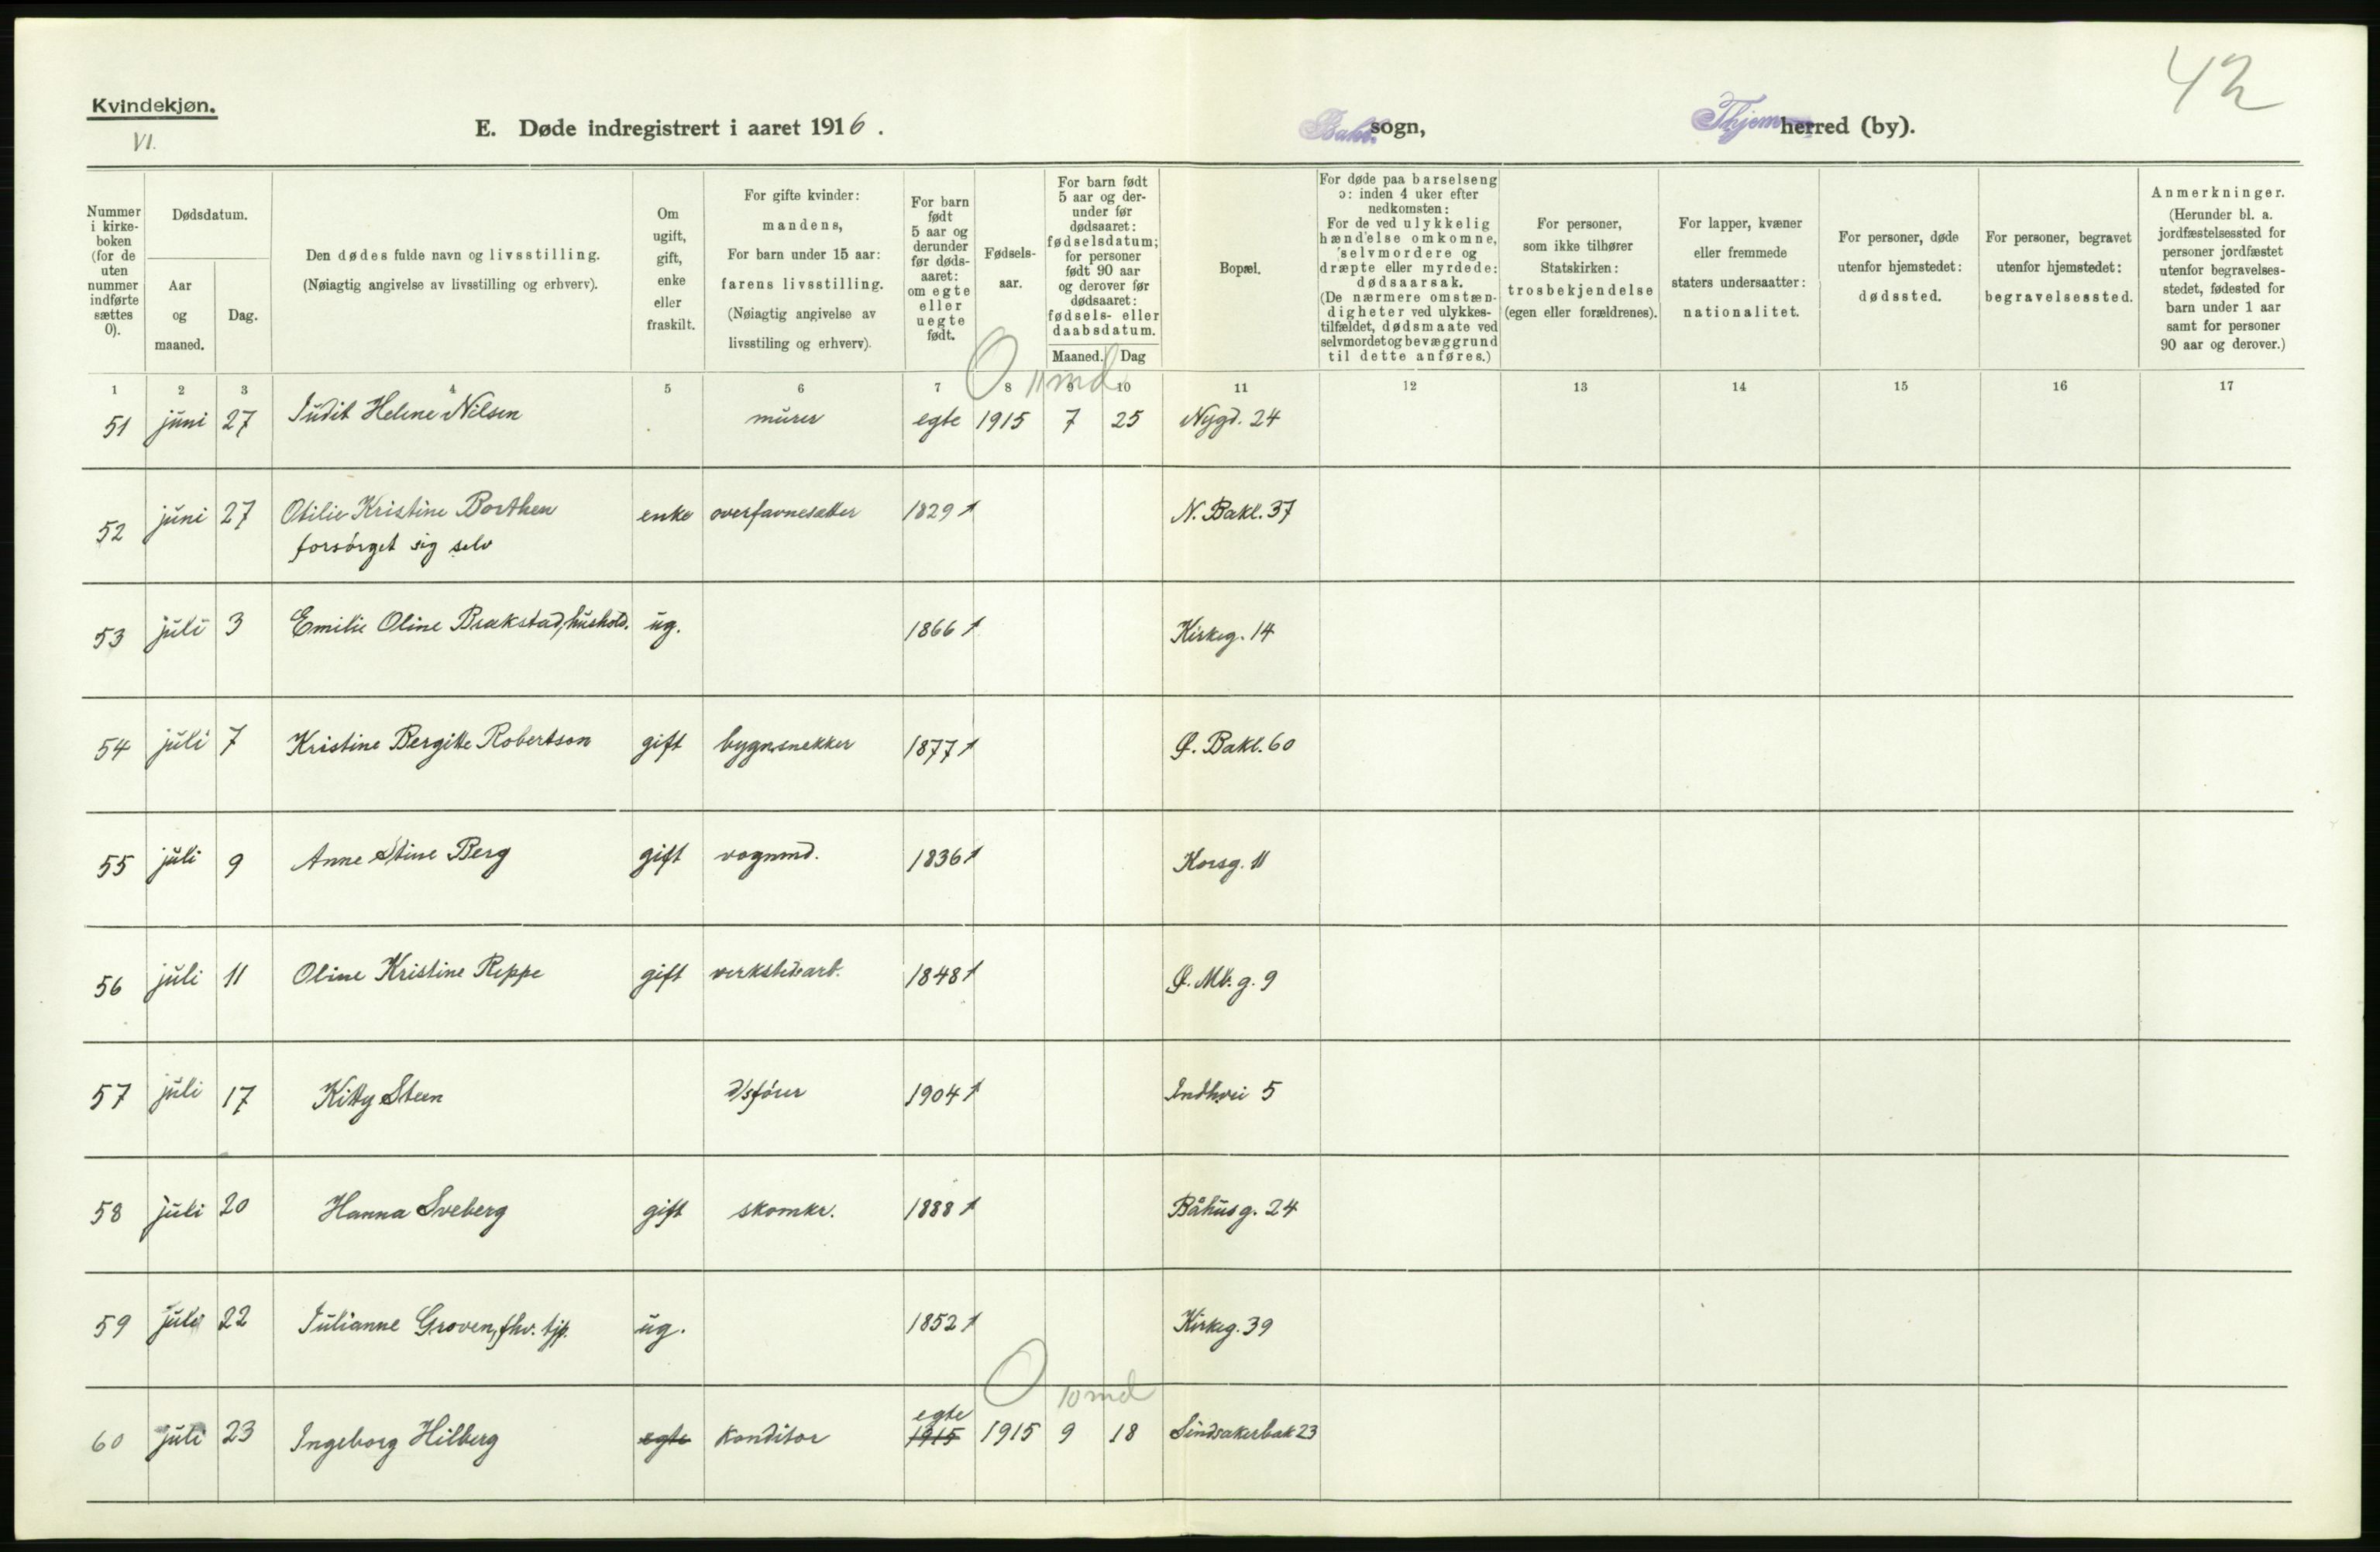 42
Kvindekjøn.
VI.
E. Døde indregistrert i aaret 1916. Bakl. sogn, Thjem herred (by).
Nummer i kirke-boken (for de uten nummer indførte sættes 0).
Dødsdatum.
Aar og maaned.
Dag.
Den dødes fulde navn og livsstilling.
(Nøiagtig angivelse av livsstilling og erhverv).
Om ugift, gift, enke eller fraskilt.
For gifte kvinder: mandens,
For barn under 15 aar: farens livsstilling.
(Nøiagtig angivelse av livsstiling og erhverv).
For barn født 5 aar og derunder før døds-aaret: om egte eller uegte født.
Fødsels-aar.
For barn født 5 aar og der-under før dødsaaret: fødselsdatum; for personer født 90 aar og derover før dødsaaret: fødsels- eller daabsdatum.
Maaned. Dag
Bopæl.
For døde paa barselseng ɔ: inden 4 uker efter nedkomsten:
For de ved ulykkelig hændelse omkomne, selvmordere og dræpte eller myrdede: dødsaarsak.
(De nærmere omstæn-digheter ved ulykkes-tilfældet, dødsmaate ved selvmordet og bevæggrund til dette anføres.)
For personer, som ikke tilhører Statskirken: trosbekjendelse (egen eller forældrenes).
For lapper, kvæner eller fremmede staters undersaatter: nationalitet.
For personer, døde utenfor hjemstedet: dødssted.
For personer, begravet utenfor hjemstedet: begravelsessted.
Anmerkninger.
(Herunder bl. a. jordfæstelsessted for personer jordfæstet utenfor begravelses-stedet, fødested for barn under 1 aar samt for personer 90 aar og derover.)
1 2 3 4 5 6 7 8 9 10 11 12 13 14 15 16 17
0 11 md
51 juni 27 Judit Helene Nilsen murer egte 1915 7 25 Nygd. 24
52 juni 27 Otilie Kristine Borthen enke overfavnesætter 1829 1 N. Bakl. 37
forsørget sig selv
53 juli 3 Emilie Oline Brækstad, hushold. ug. 1866 1 Kirkeg. 14
54 juli 7 Kristine Bergitte Robertson gift bygn.snekker 1877 1 Ø. Bakl. 60
55 juli 9 Anne Stine Berg gift vognmd. 1836 1 Korsg. 11
56 juli 11 Oline Kristine Reppe gift verkstedarb. 1848 1 Ø. Mb. g. 9
57 juli 17 Kitty Steen d/sfører 1904 1 Indhvei 5
58 juli 20 Hanna Sveberg gift skomkr. 1888 1 Båhusg. 24
59 juli 22 Julianne Groven, fhv. tjp. ug. 1852 1 Kirkeg. 39
0 10 md
egte
60 juli 23 Ingeborg Hilberg egte konditor 1915 1915 9 18 Sindsakerbak 23